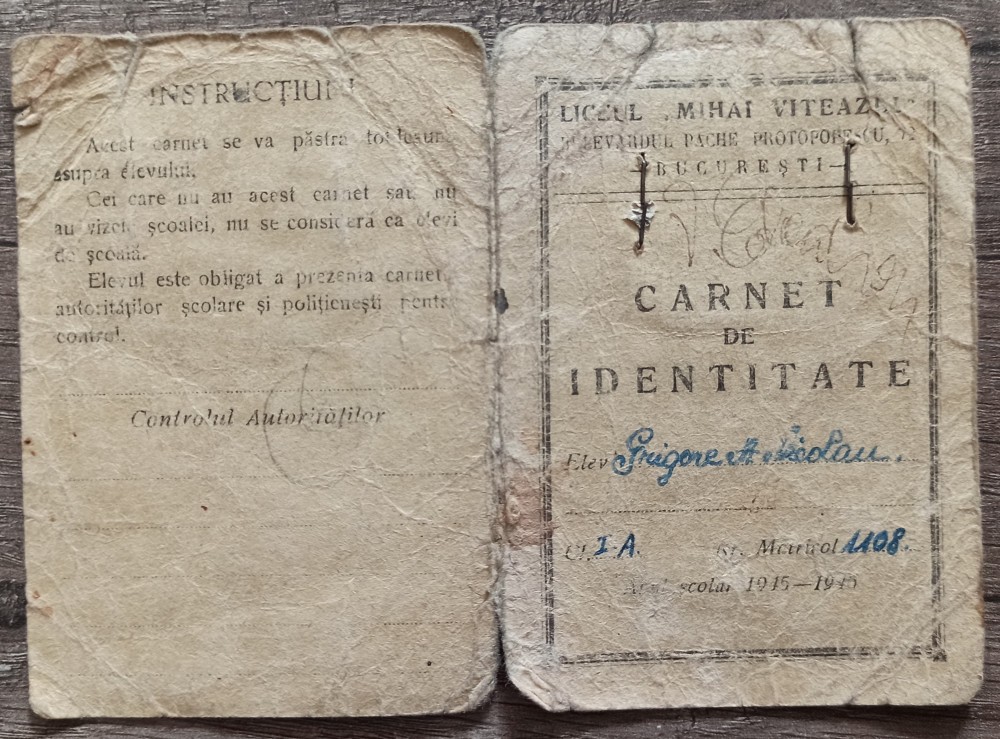 INSTRUCȚIUNI
Acest carnet se va păstra totdeauna
asupra elevului.
Cei care nu au acest carnet sau nu
au viza școalei, nu se consideră ca elevi
de școală.
Elevul este obligat a prezenta carnetul
autorităților școlare și polițienești pentru
control.
Controlul Autorităților
LICEUL „MIHAI VITEAZUL"
BULEVARDUL PACHE PROTOPOPESCU,
BUCUREȘTI
CARNET
DE
IDENTITATE
Elev Grigore A Nicolau.
Cl. I-A. Nr. Matricol 1108.
Anul școlar 1945—1945